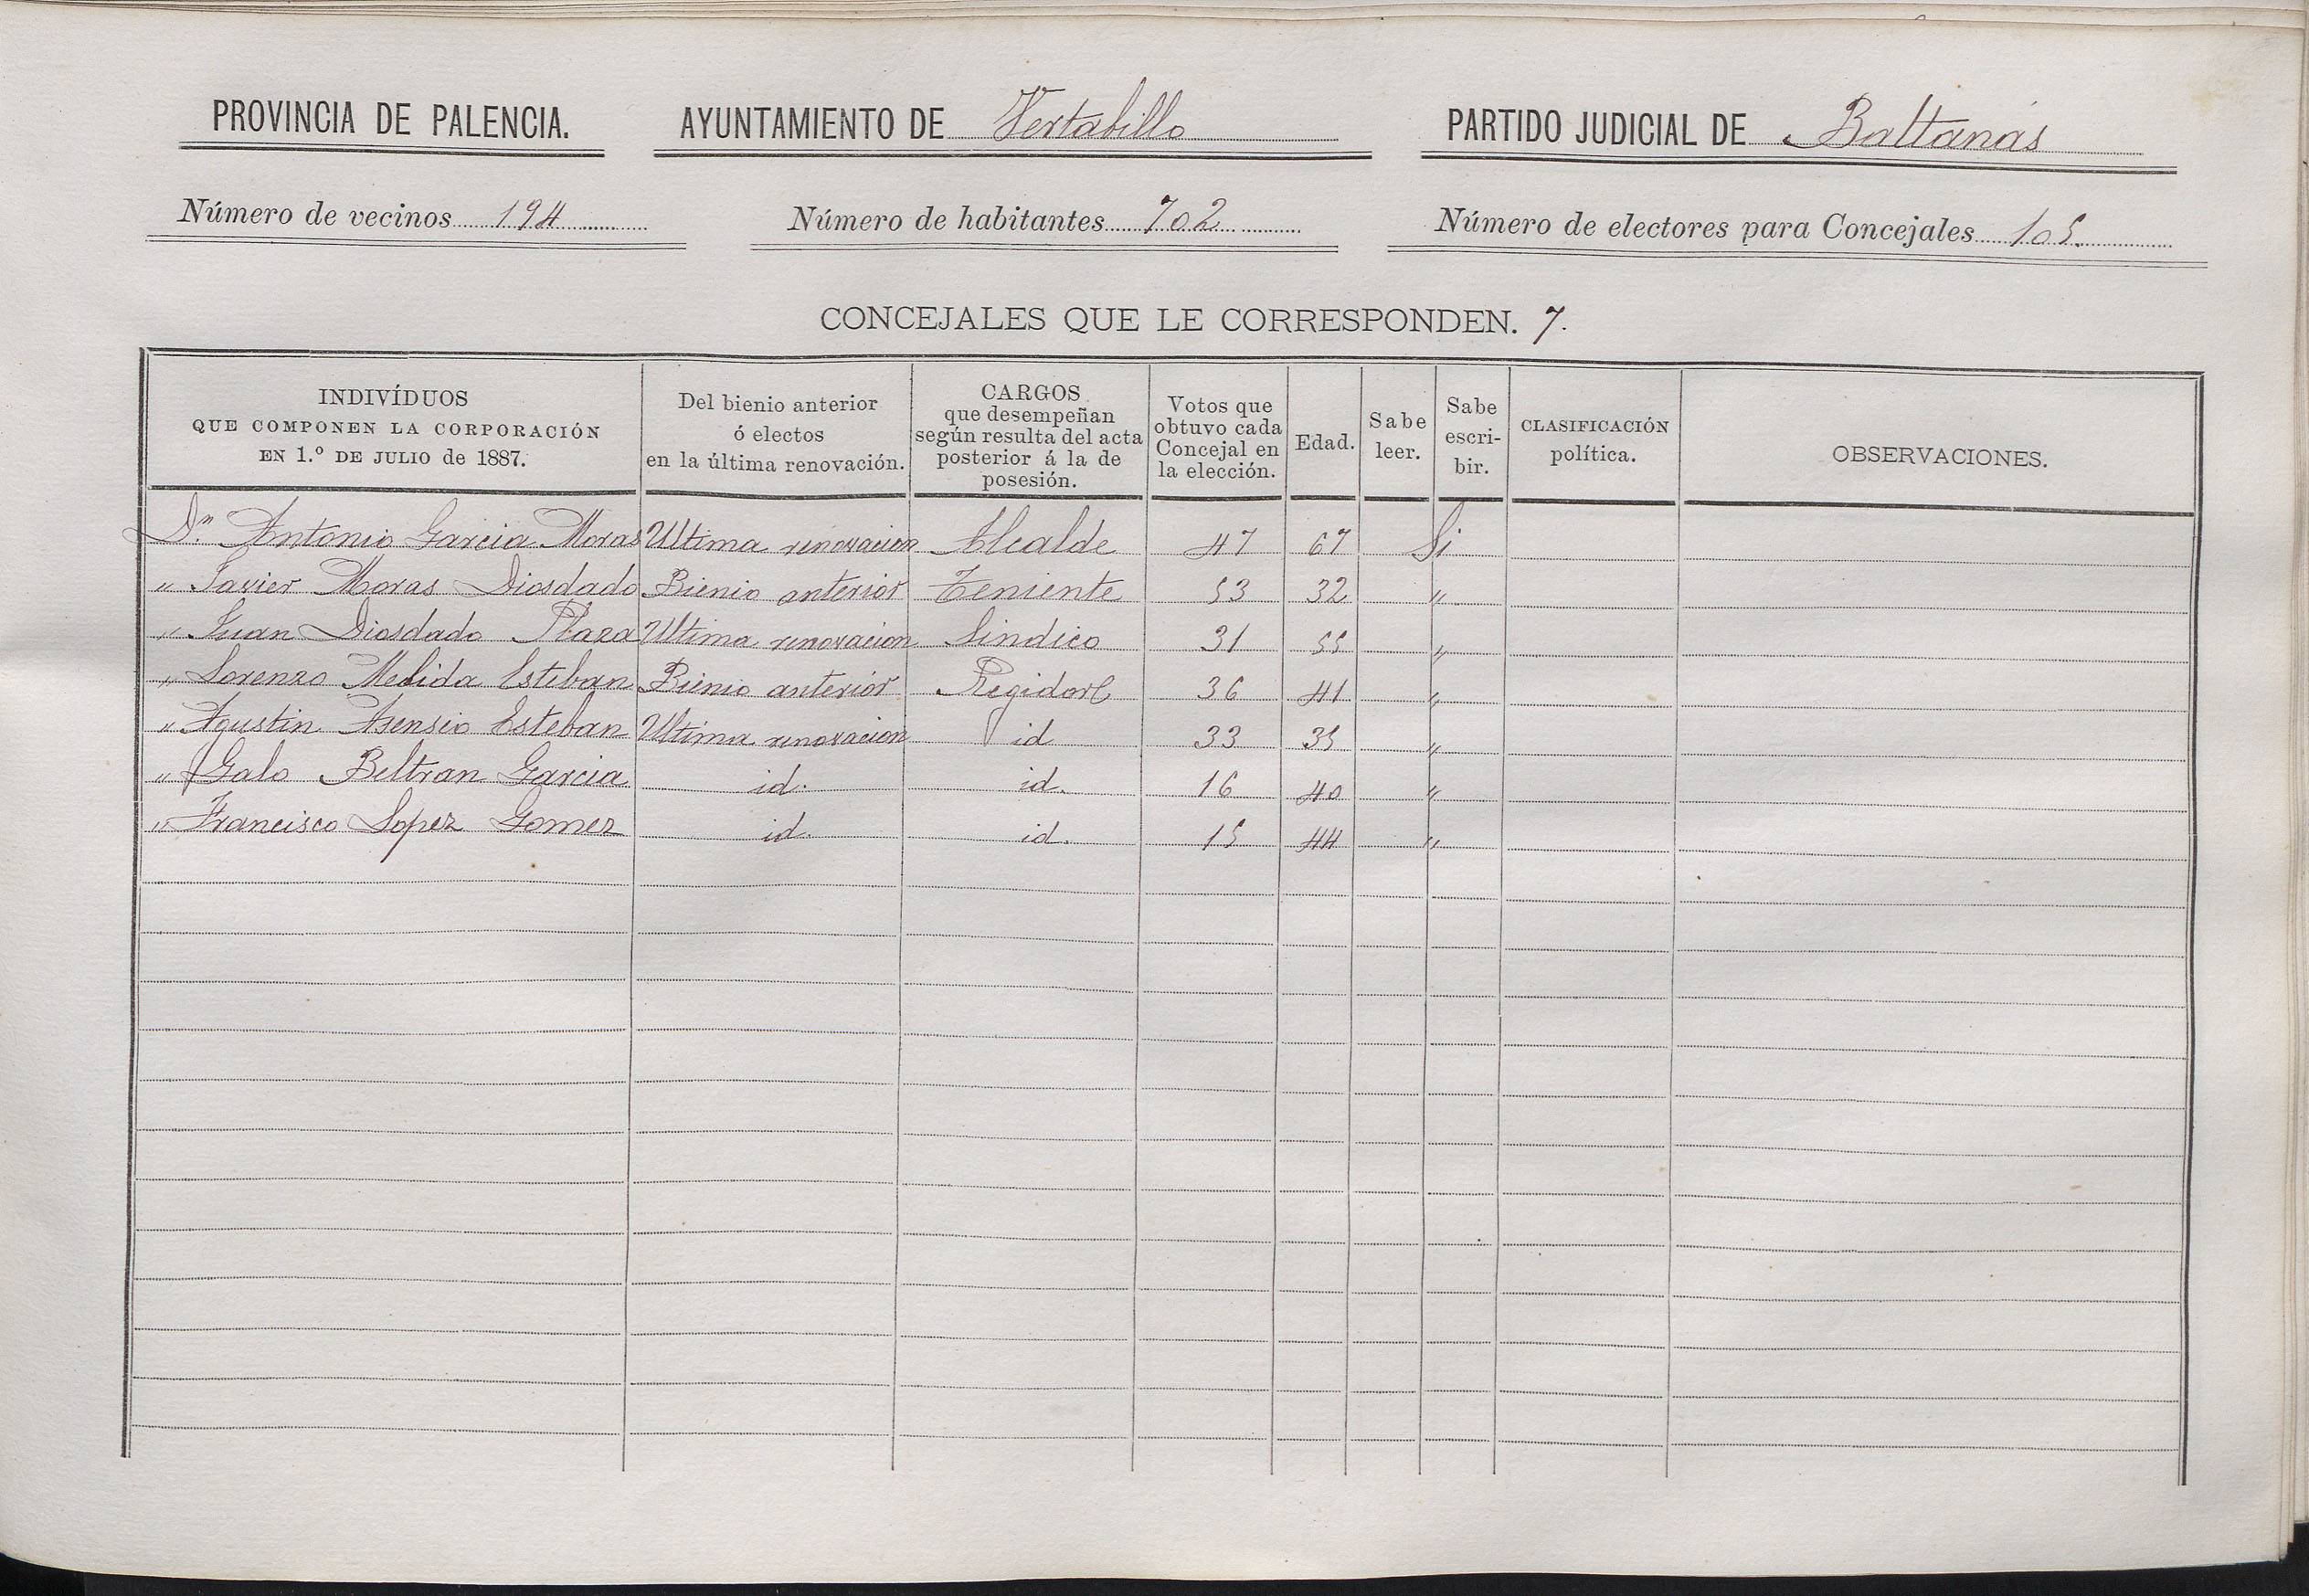 PROVINCIA DE PALENCIA. AYUNTAMIENTO DE Vertabillo PARTIDO JUDICIAL DE Baltanás
Número de vecinos 194 Número de habitantes 702 Número de electores para Concejales 105.
CONCEJALES QUE LE CORRESPONDEN. 7.
INDIVÍDUOS
QUE COMPONEN LA CORPORACIÓN
EN 1.º DE JULIO de 1887.
Del bienio anterior
ó electos
en la última renovación.
CARGOS
que desempeñan
según resulta del acta
posterior á la de
posesión.
Votos que
obtuvo cada
Concejal en
la elección.
Edad.
Sabe
leer.
Sabe
escri-
bir.
CLASIFICACIÓN
política.
OBSERVACIONES.
Dn. Antonio Garcia Moras Ultima renovacion Alcalde 47 67 Si
" Javier Moras Diosdado Bienio anterior Teniente 53 32 "
" Juan Diosdado Plaza Ultima renovacion Sindico 31 55 "
" Lorenzo Melida Esteban Bienio anterior 36 41 "
" Agustin Asensio Esteban Ultima renovacion id 33 35 "
" Galo Beltran Garcia id. id. 16 40 "
" Francisco Lopez Gomez id. id. 15 44 "